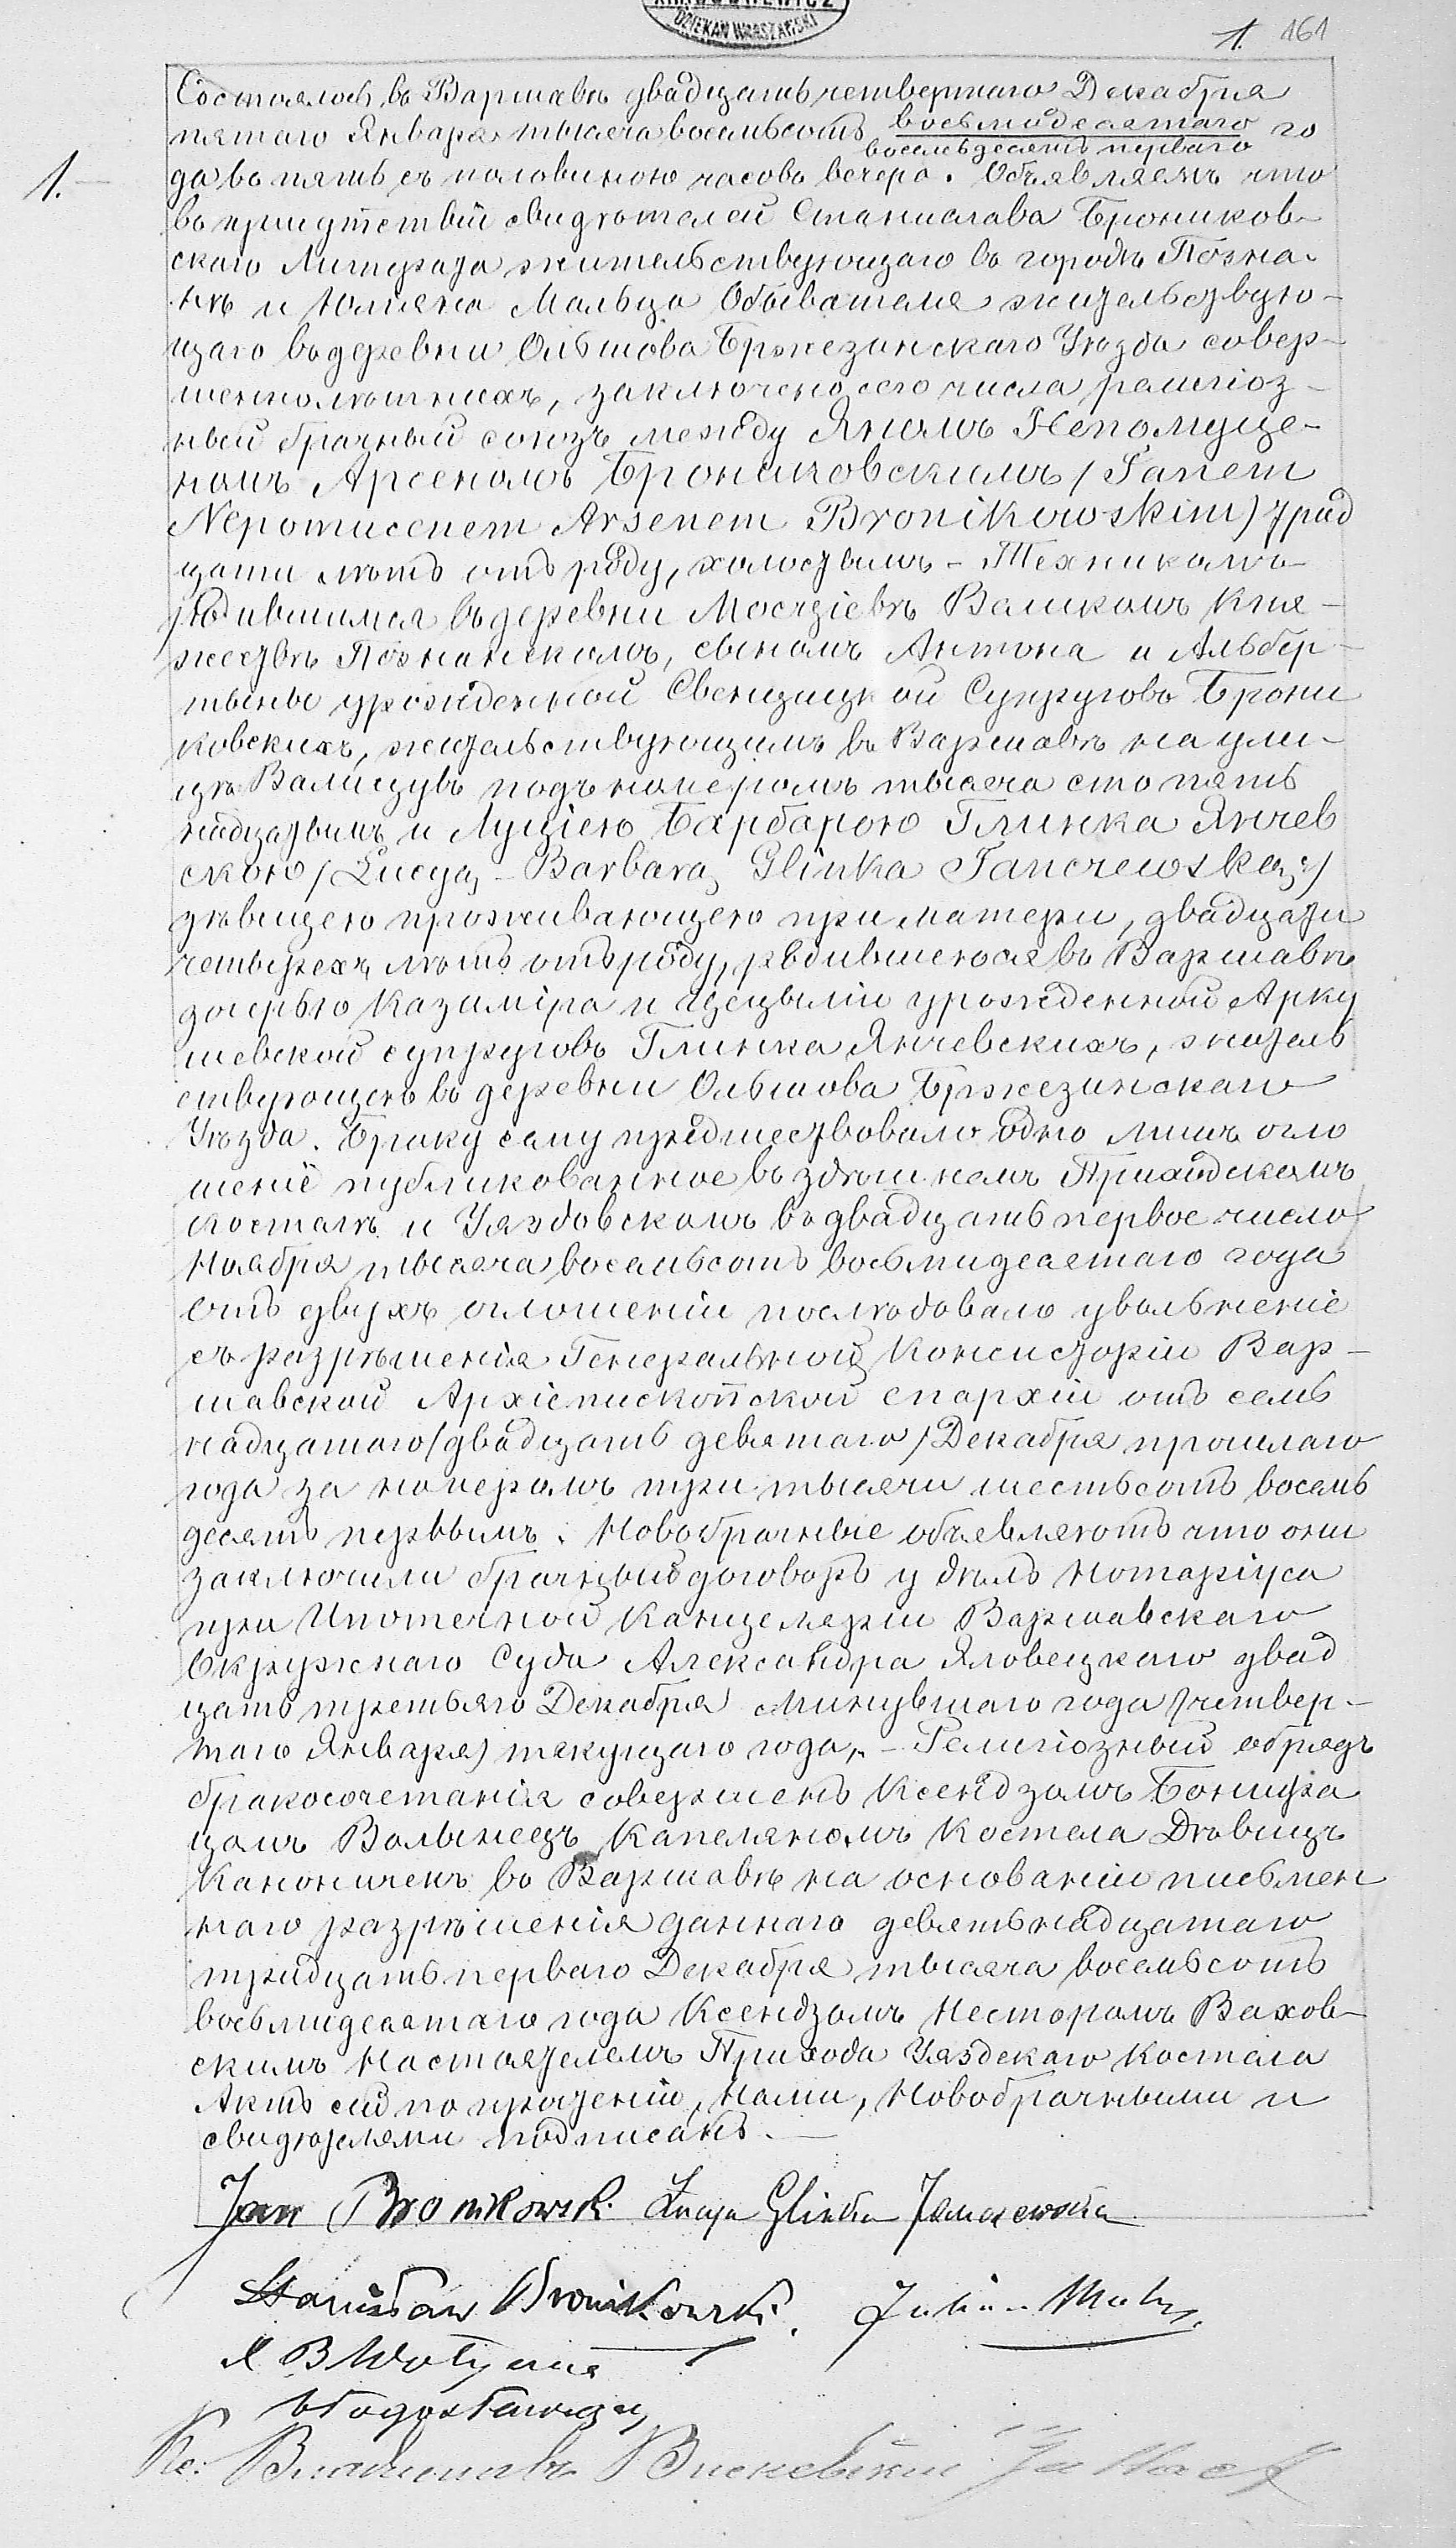 DZIEKAN WARSZAWSKI
1. 161
1.
Состоялось въ Варшавѣ двадцать четвертаго Декабря
пятаго Января тысяча восемьсотъ восьмидесятаго го
восемьдесятъ перваго
да въ пять съ половиною часовъ вечера. Объявляемъ что
въ присутствіи свидѣтелей Станислава Броников-
скаго Литерата жительствующаго въ городѣ Позна-
нѣ и Юліяна Мальца Обывателя жительствую-
щаго въ деревни Ольшова Бржезинскаго Уѣзда совер-
шеннолѣтнихъ, заключено сего числа религіоз-
ный брачный союзъ между Яномъ Непомуце-
номъ Арсеномъ Брониковскимъ / Janem
Nepomucenem Arsenem Bronikowskim) трид
цати лѣтъ отъ роду, холостымъ - Техникомъ
родившимся въ деревни Мосчдіевѣ Великомъ Кня-
жествѣ Познанскомъ, сыномъ Антона и Альбер-
тыны урожденной Свенцицкой Супруговъ Брони
ковскихъ, жительствующимъ въ Варшавѣ на ули-
цѣ Валицувъ подъ номеромъ тысяча сто пять
надцатымъ и Луціею Барбарою Глинка Янчев
скою / Łucyą - Barbarą Glinka Janczewską /
дѣвицею проживающею при матери, двадцати
четырехъ лѣтъ отъ роду, родившеюся въ Варшавѣ
дочерью Казиміра и Цецыліи урожденной Арку
шевской супруговъ Глинка Янчевскихъ, житель
ствующею въ деревни Ольшова Бржезинскаго
Уѣзда. Браку сему предшествовало одно лишь огло
шеніе публикованное въ здѣшнемъ Приходскомъ
костелѣ и Уяздовскомъ въ двадцать первое число
Ноября тысяча восемьсотъ восьмидесятаго года
отъ двухъ оглошеніи послѣдовало увольненіе
съ разрѣшенія Генеральной Консисторіи Вар-
шавской Архіепископской епархіи отъ семь
надцатаго / двадцать девятаго / Декабря прошлаго
года за номеромъ три тысячи шестьсотъ восемь
десятъ первымъ. Новобрачные объявляютъ что они
заключили брачный договоръ у дѣлъ Нотаріуса
при Ипотечной Канцеляріи Варшавскаго
Окружнаго Суда Александра Яловецкаго двад
цать третьяго Декабря минувшаго года / четвер-
таго Января) текущаго года. - Религіозный обрядъ
бракосочетанія совершенъ Ксендзомъ Бонифа
цомъ Волынецъ Капеляномъ Костела Дѣвицъ
Каноничекъ въ Варшавѣ на основаніи письмен
наго разрѣшенія даннаго девятьнадцатаго
тридцать перваго Декабря тысяча восемьсотъ
восьмидесятаго года Ксендзомъ Несторомъ Вахов-
скимъ Настоятелемъ Прихода Уяздскаго Костела
Актъ сей по прочтеніи, Нами, Новобрачными и
свидѣтелями подписанъ.
Jan Bronikowski. Łucja Glinka Janczewska
Stanisław Bronikowski. Julian Malcz.
X B Wołyniec
błogosławiący
Кс: